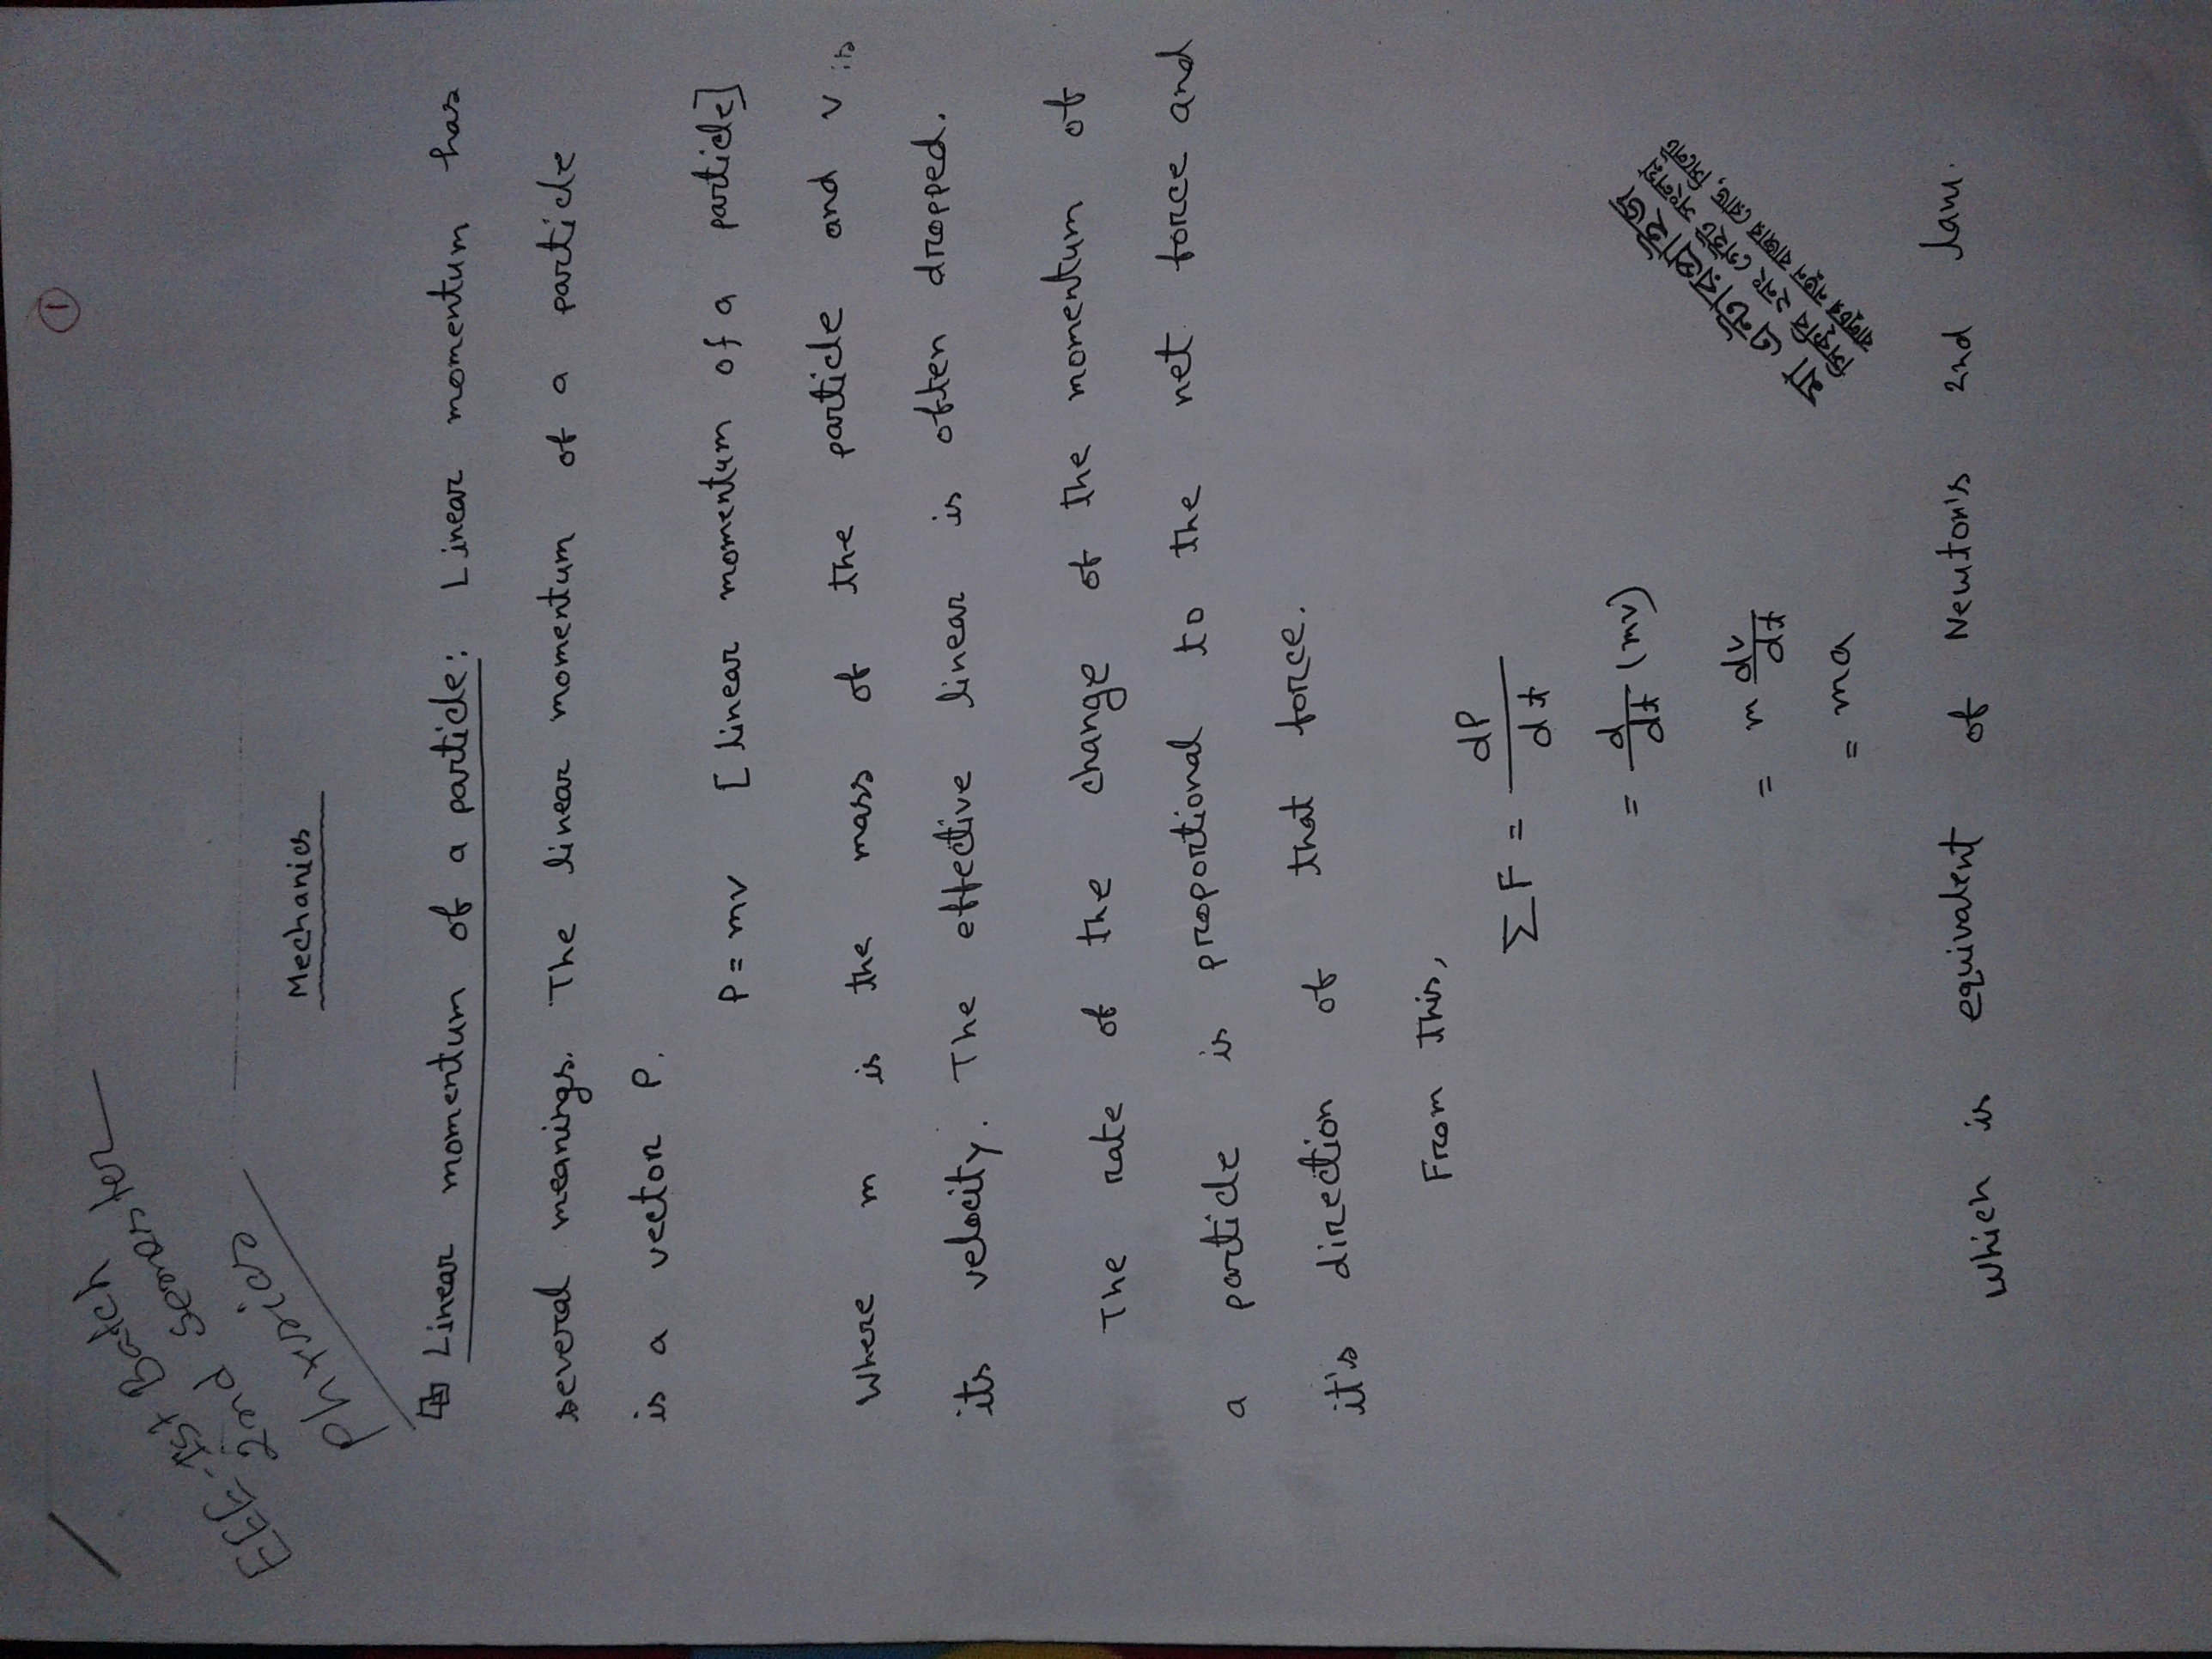 ①
EEE-1st Batch
2nd Semester
Physics
Mechanics
Linear momentum of a particle: Linear momentum has
several meanings. The linear momentum of a particle
is a vector P.
P = mv [linear momentum of a particle]
Where m is the mass of the particle and v is
its velocity. The effective linear is often dropped.
The rate of the change of the momentum of
a particle is proportional to the net force and
it's direction of that force.
From this,
ΣF = dP/dt
= d/dt (mv)
= m dv/dt
= ma
মা এন্টারপ্রাইজ
সিকৃবি ২নং গেইট সংলগ্ন
বালুচর নতুন বাজার রোড, সিলেট
Which is equivalent of Newton's 2nd law.